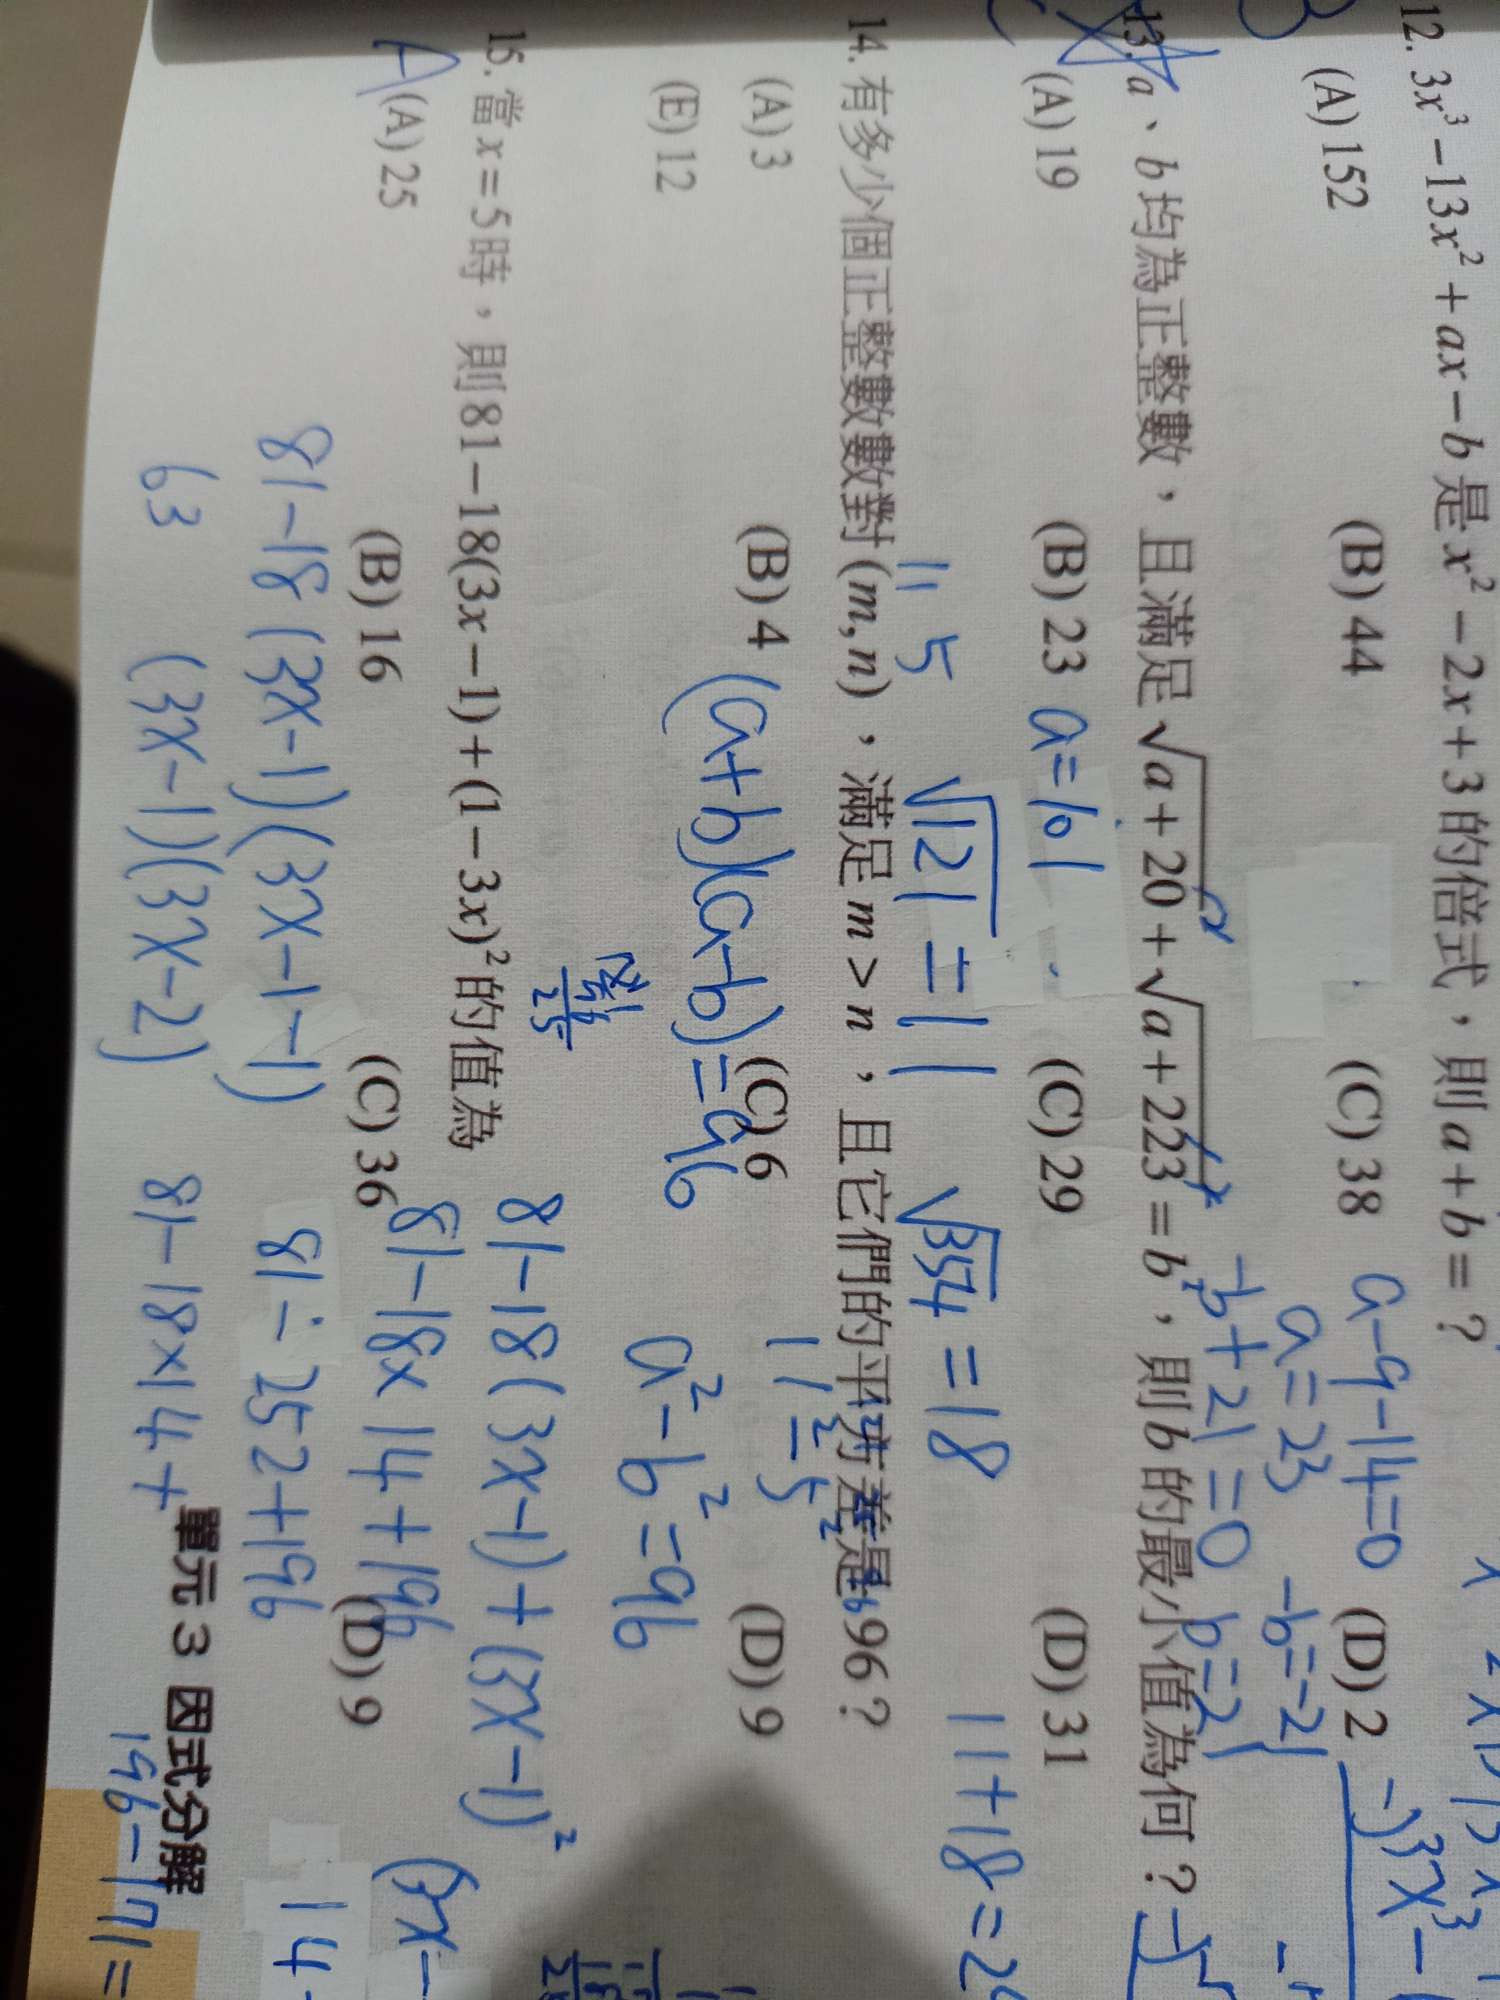 12. 3x³－13x²＋ax－b是x²－2x＋3的倍式，則a＋b＝？
(A) 152 (B) 44 (C) 38 (D) 2
a-9-14=0
a=23
-b=-21
-b+21=0 b=21
-)3x³-
13. a、b均為正整數，且滿足√(a＋20)＋√(a＋223)＝b，則b的最小值為何？
(A) 19 (B) 23 (C) 29 (D) 31
a=101
11 5 √121=11 √354=18 11+18=29
14. 有多少個正整數數對(m, n)，滿足m＞n，且它們的平方差是96？
(A) 3 (B) 4 (C) 6 (D) 9
(E) 12
11²-5²
(a+b)(a-b)=96 a²-b²=96
15. 當x＝5時，則81－18(3x－1)＋(1－3x)²的值為
A (A) 25 (B) 16 (C) 36 (D) 9
81-18(3x-1)+(3x-1)²
81-18x14+196
81-18(3x-1)(3x-1-1) 81-252+196
63 (3x-1)(3x-2) 81-18×14+
196-171=
單元 3 因式分解